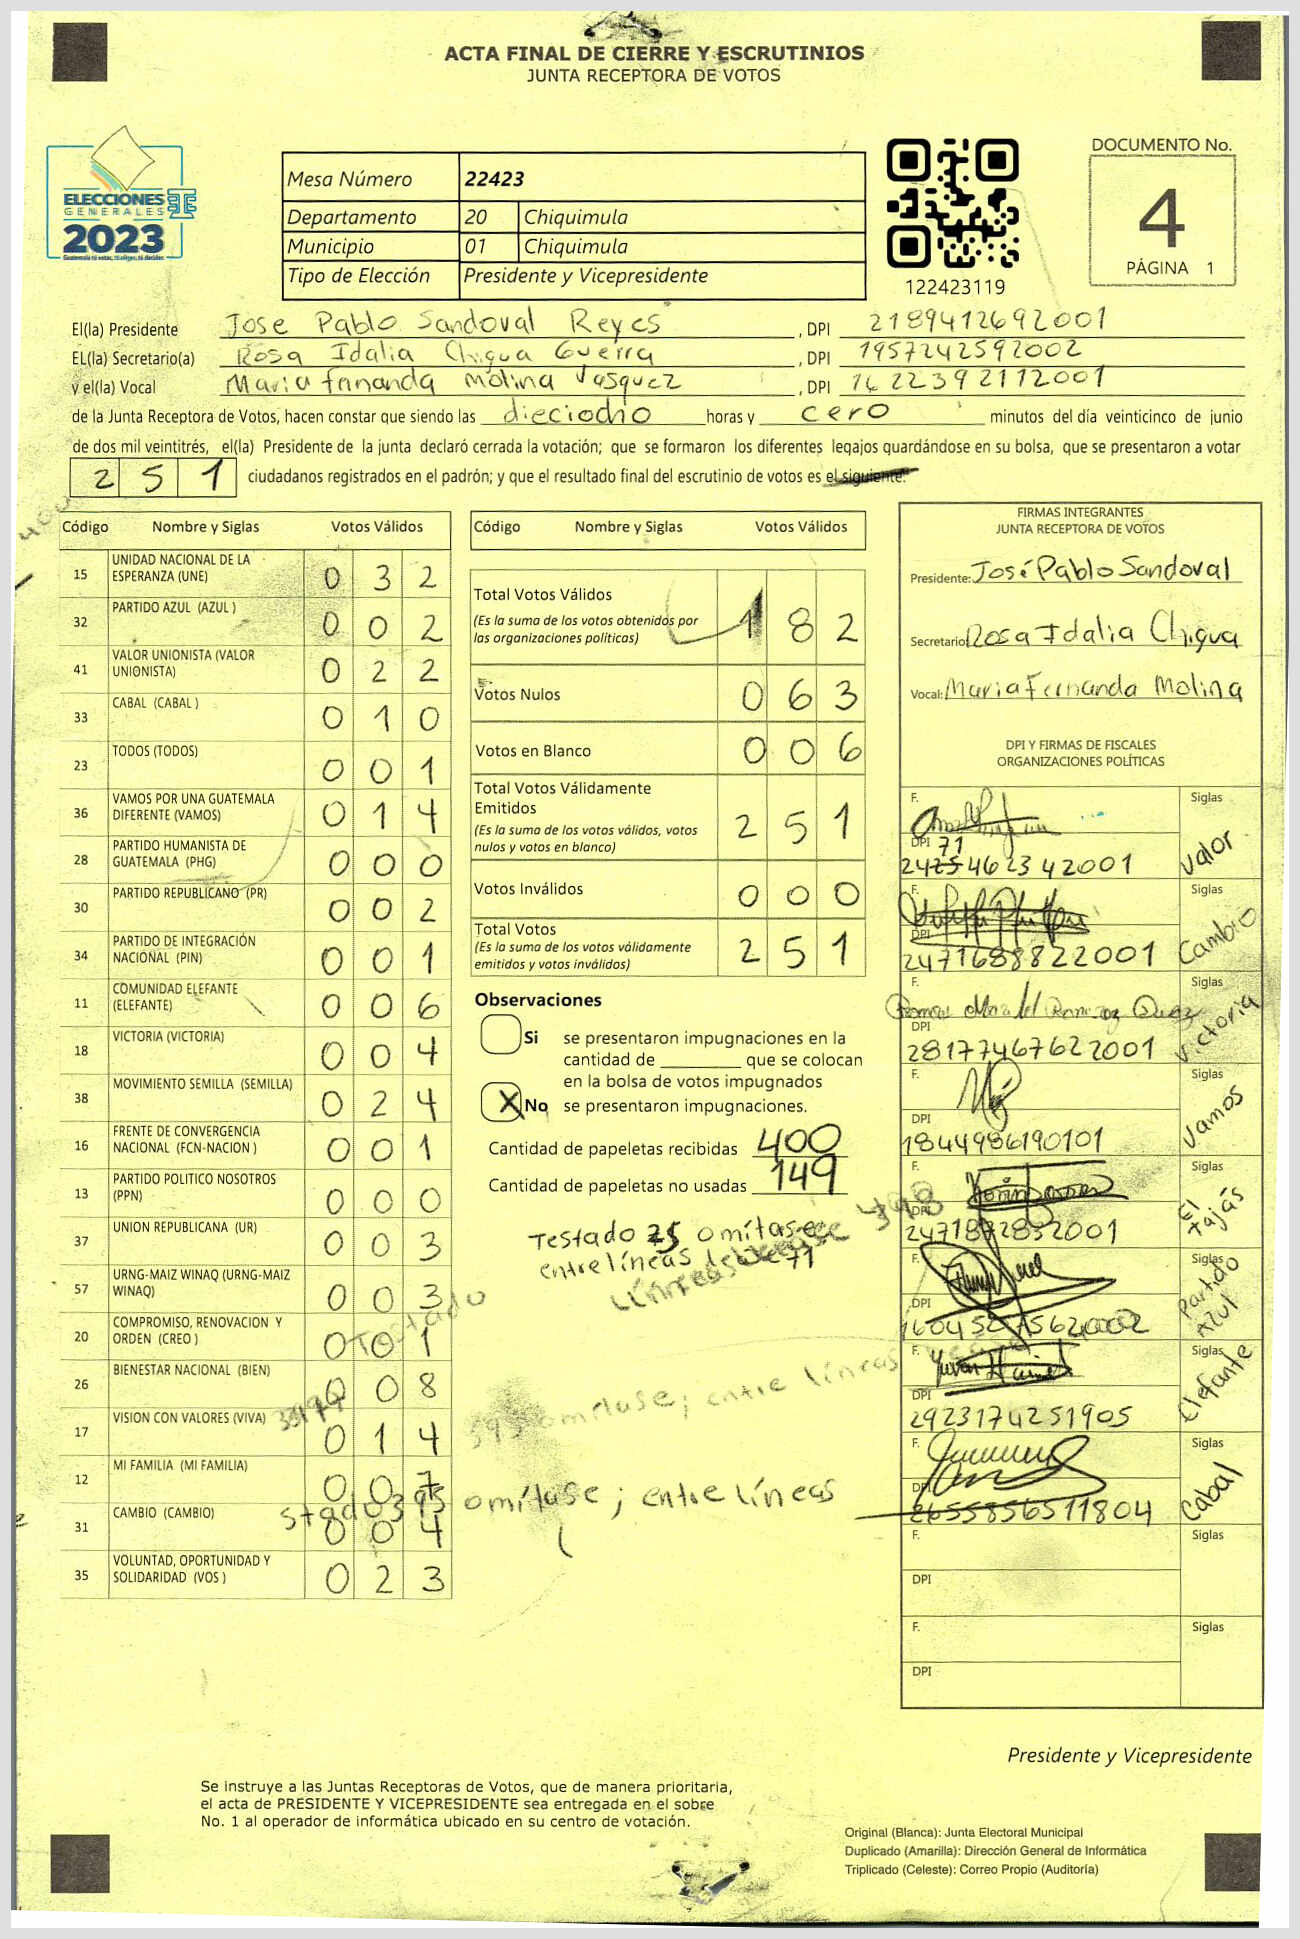 ACTA FINAL DE CIERRE Y ESCRUTINIOS
JUNTA RECEPTORA DE VOTOS
ELECCIONES
GENERALES
2023
Guatemala tú votas, tú eliges, tú decides
Mesa Número 22423
Departamento 20 Chiquimula
Municipio 01 Chiquimula
Tipo de Elección Presidente y Vicepresidente
122423119
DOCUMENTO No.
4
PÁGINA 1
El(la) Presidente Jose Pablo Sandoval Reyes , DPI 2189412692001
EL(la) Secretario(a) Rosa Idalia Chigua Guerra , DPI 1957242592002
y el(la) Vocal Maria frnanda Molina Vasquez , DPI 1622392112001
de la Junta Receptora de Votos, hacen constar que siendo las dieciocho horas y cero minutos del día veinticinco de junio
de dos mil veintitrés, el(la) Presidente de la junta declaró cerrada la votación; que se formaron los diferentes legajos guardándose en su bolsa, que se presentaron a votar
251 ciudadanos registrados en el padrón; y que el resultado final del escrutinio de votos es el siguiente:
Código Nombre y Siglas Votos Válidos
15 UNIDAD NACIONAL DE LA ESPERANZA (UNE) 0 3 2
32 PARTIDO AZUL (AZUL ) 0 0 2
41 VALOR UNIONISTA (VALOR UNIONISTA) 0 2 2
33 CABAL (CABAL ) 0 1 0
23 TODOS (TODOS) 0 0 1
36 VAMOS POR UNA GUATEMALA DIFERENTE (VAMOS) 0 1 4
28 PARTIDO HUMANISTA DE GUATEMALA (PHG) 0 0 0
30 PARTIDO REPUBLICANO (PR) 0 0 2
34 PARTIDO DE INTEGRACIÓN NACIONAL (PIN) 0 0 1
11 COMUNIDAD ELEFANTE (ELEFANTE) 0 0 6
18 VICTORIA (VICTORIA) 0 0 4
38 MOVIMIENTO SEMILLA (SEMILLA) 0 2 4
16 FRENTE DE CONVERGENCIA NACIONAL (FCN-NACION ) 0 0 1
13 PARTIDO POLITICO NOSOTROS (PPN) 0 0 0
37 UNION REPUBLICANA (UR) 0 0 3
57 URNG-MAIZ WINAQ (URNG-MAIZ WINAQ) 0 0 3
20 COMPROMISO, RENOVACION Y ORDEN (CREO ) 0 0 1
26 BIENESTAR NACIONAL (BIEN) 0 0 8
17 VISION CON VALORES (VIVA) 0 1 4
12 MI FAMILIA (MI FAMILIA) 0 0 7
31 CAMBIO (CAMBIO) 0 0 4
35 VOLUNTAD, OPORTUNIDAD Y SOLIDARIDAD (VOS ) 0 2 3
Código Nombre y Siglas Votos Válidos
Total Votos Válidos 1 8 2
(Es la suma de los votos obtenidos por
las organizaciones políticas)
Votos Nulos 0 6 3
Votos en Blanco 0 0 6
Total Votos Válidamente
Emitidos 2 5 1
(Es la suma de los votos válidos, votos
nulos y votos en blanco)
Votos Inválidos 0 0 0
Total Votos 2 5 1
(Es la suma de los votos válidamente
emitidos y votos inválidos)
Observaciones
Si se presentaron impugnaciones en la
cantidad de ________ que se colocan
en la bolsa de votos impugnados
X No se presentaron impugnaciones.
Cantidad de papeletas recibidas 400
Cantidad de papeletas no usadas 149
Testado 25 omítase
entrelíneas léase 71
Testado
omítase; entre líneas
omítase; entre líneas
FIRMAS INTEGRANTES
JUNTA RECEPTORA DE VOTOS
Presidente: José Pablo Sandoval
Secretario Rosa Idalia Chigua
Vocal: Maria Fernanda Molina
DPI Y FIRMAS DE FISCALES
ORGANIZACIONES POLÍTICAS
F. Siglas Valor
DPI 71
2425462342001
F. Siglas Cambio
DPI 2471688822001
F. Siglas Victoria
DPI 28177467622001
F. Siglas Vamos
DPI 1844986190101
F. Siglas El Tajás
DPI 2471872832001
F. Siglas Partido Azul
DPI
F. Siglas Elefante
DPI 2923174251905
F. Siglas Cabal
DPI 2655856511804
F. Siglas
DPI
F. Siglas
DPI
Presidente y Vicepresidente
Se instruye a las Juntas Receptoras de Votos, que de manera prioritaria,
el acta de PRESIDENTE Y VICEPRESIDENTE sea entregada en el sobre
No. 1 al operador de informática ubicado en su centro de votación.
Original (Blanca): Junta Electoral Municipal
Duplicado (Amarilla): Dirección General de Informática
Triplicado (Celeste): Correo Propio (Auditoría)